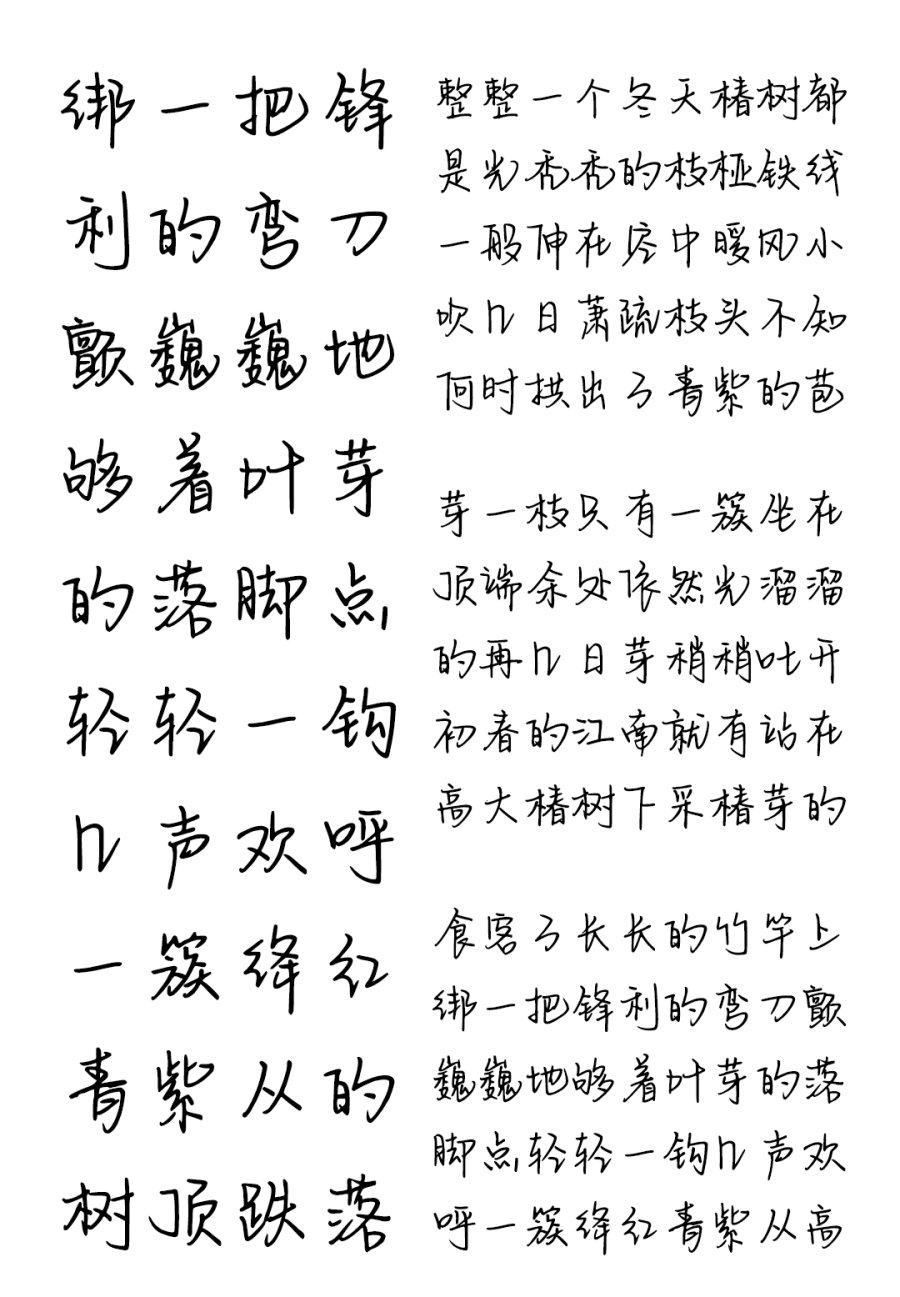 绑一把锋
利的弯刀
颤巍巍地
够着叶芽
的落脚点
轻轻一钩
几声欢呼
一簇绛红
青紫从的
树顶跌落
整整一个冬天椿树都
是光秃秃的枝桠铁线
一般伸在空中暖风小
吹几日萧疏枝头不知
何时拱出了青紫的苞
芽一枝只有一簇坐在
顶端余处依然光溜溜
的再几日芽稍稍吐开
初春的江南就有站在
高大椿树下采椿芽的
食客了长长的竹竿上
绑一把锋利的弯刀颤
巍巍地够着叶芽的落
脚点轻轻一钩几声欢
呼一簇绛红青紫从高